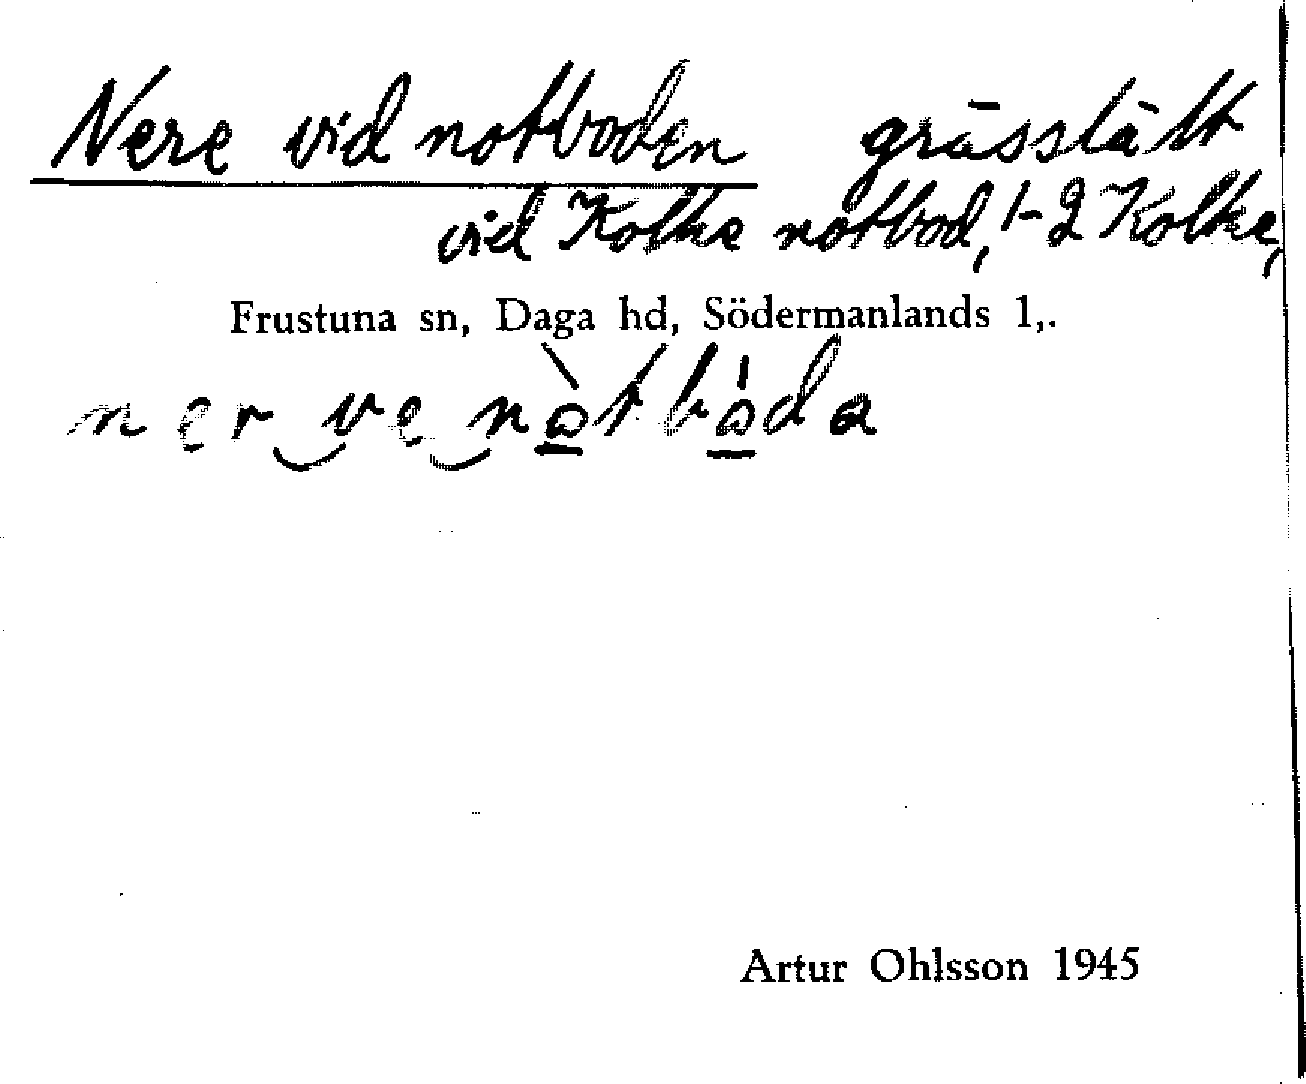 Nere vid notboden grässlätt
vid Kolke notbod, 1-2 Kolke,
Frustuna sn, Daga hd, Södermanlands l,.
ner ve nòtbóda
Artur Ohlsson 1945